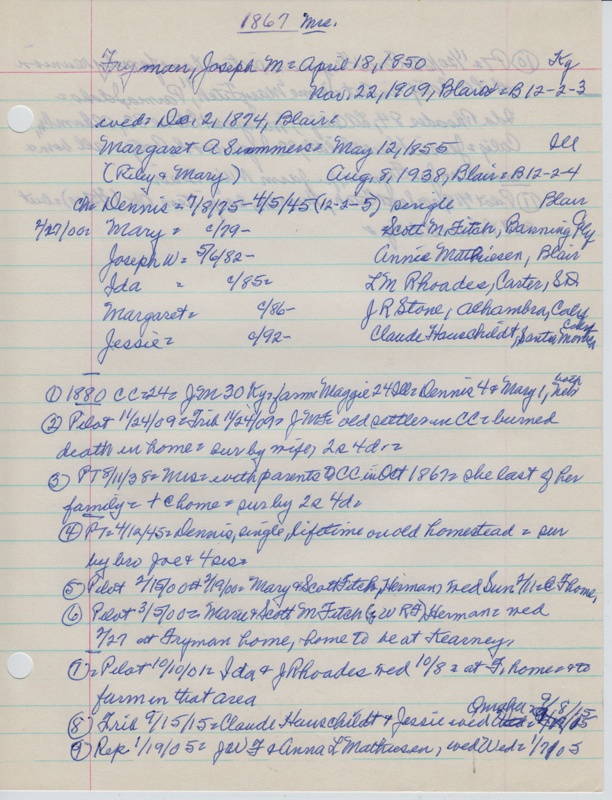 1867 Mrs.
Fryman, Joseph M = April 18, 1850 Ky
Nov, 22, 1909, Blair = B 12-2-3
wed = Dec 2, 1874, Blair =
Margaret A Summers = May 12, 1855 Ill
(Riley & Mary) Aug, 8, 1938, Blair = B 12-2-4
Ch = Dennis = 7/8/75 - 4/5/45 (12-2-5) single Blair
2/27/00 = Mary = c/79 - Scott M Fitch, Banning
Joseph W = 5/6/82 - Annie Mathiesen, Blair
Ida = c/85 = L M Rhoades, Carter, SD
Margaret = c/86 - J R Stone, Alhambra, Calif
Jessie = c/92 - Claude Hauschildt, Santa Monica Calif
① 1880 CC = 24 = J M 30 Ky = farm = Maggie 24 Ill = Dennis 4 & Mary 1, both Neb
② Pilot 11/24/09 = Trib 11/24/09 = J M F = old settler in CC = burned
death in home = sur by wife, 2s 4d =
③ PT 8/11/38 = Mrs = with parents to CC in Oct 1867 = she last of her
family = + C home = sur by 2s 4d =
④ PT = 4/12/45 = Dennis, single, lifetime on old homestead = sur
by bro Joe & 4 sis =
⑤ Pilot 2/15/00 + 2/19/00 = Mary & Scott Fitch, Herman, wed Sun 2/11 = @ F home,
⑥ Pilot 3/5/00 = Mary & Scott M Fitch (g W R F) Herman = wed
2/27 at Fryman home, home to be at Kearney,
⑦ = Pilot 10/10/01 = Ida & J Rhoades wed 10/8 = at F, home = & to
farm in that area
⑧ Trib 9/15/15 = Claude Hauschildt & Jessie wed Omaha = 9/8/15
⑨ Rep 1/19/05 = J W F & Anna L Mathiesen, wed Wed = 1/ /05